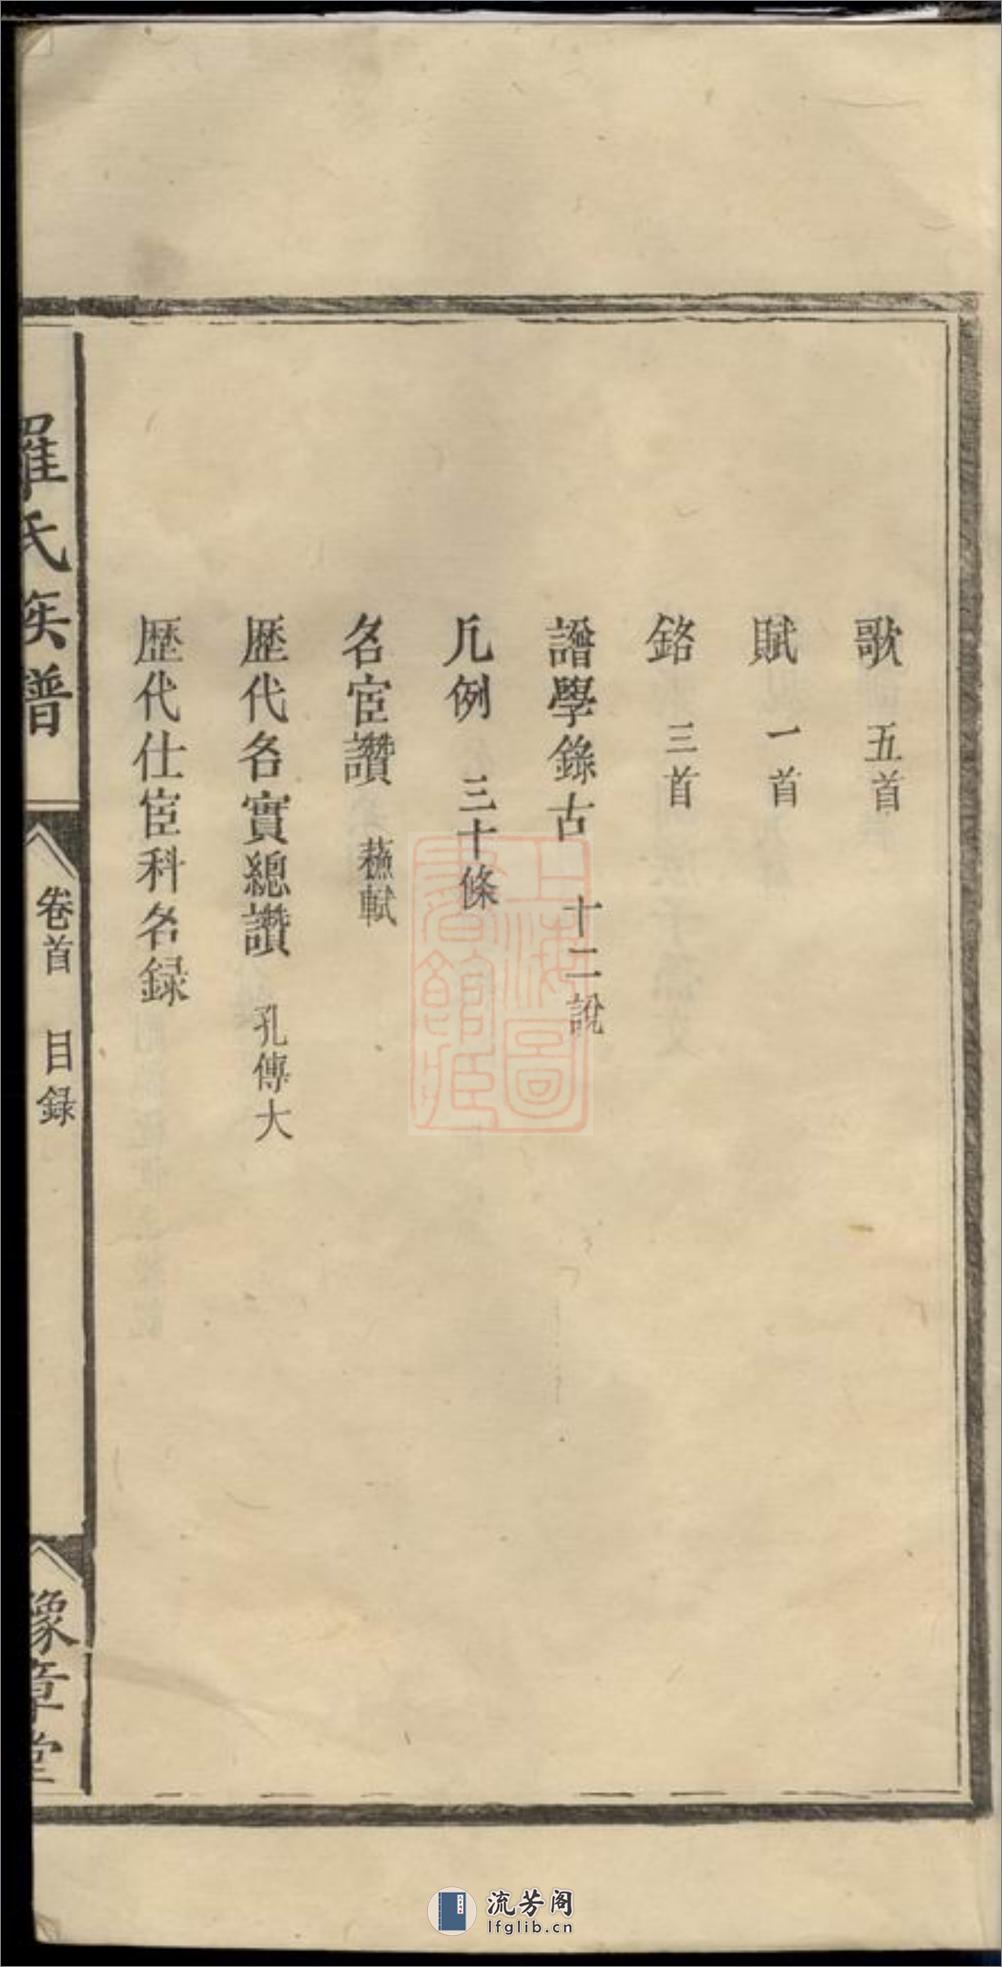 歌 五首
賦 一首
銘 三首
譜學錄古 十二說
凡例 三十條
名宦讚 蘓軾
歷代名實總讚 孔傳大
歷代仕宦科名録
羅氏族譜
卷首 目録
豫章堂
上海圖書館藏
流芳阁
lfglib.cn